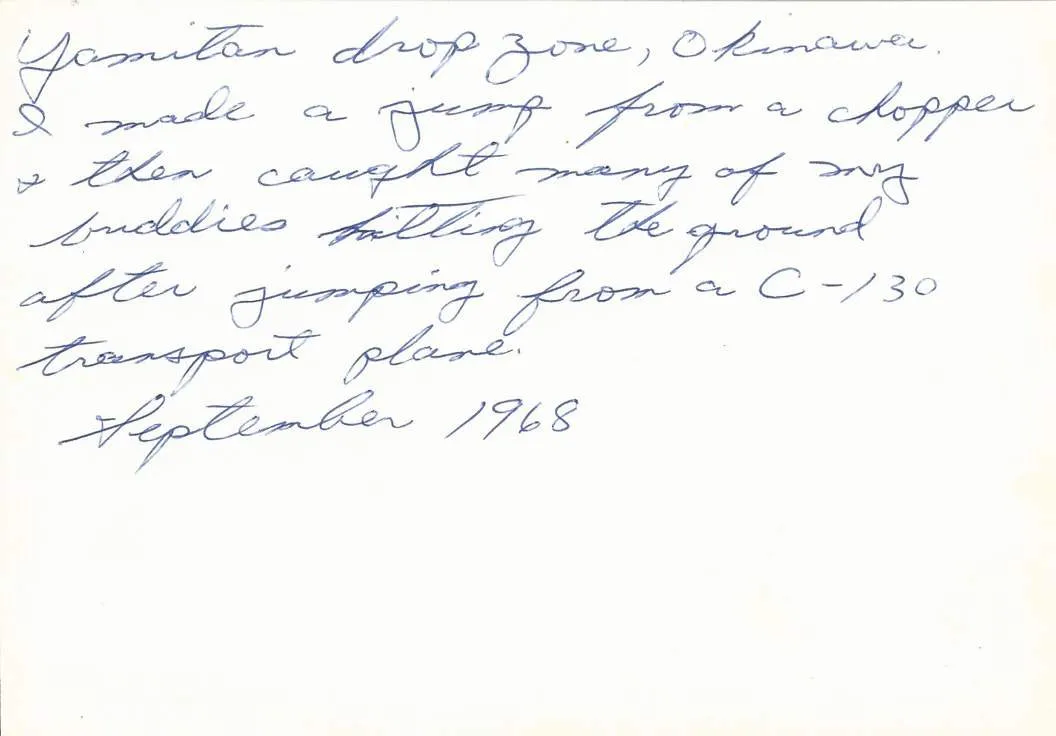 Yamitan drop zone, Okinawa.
I made a jump from a chopper
& then caught many of my
buddies hitting the ground
after jumping from a C-130
transport plane.
September 1968